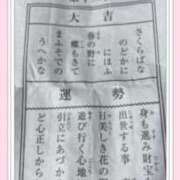 大吉
さくらばな
のどかに
にほふ
春の野に
蝶もきて
まふそでの
うへかな
運勢
身も進み財宝
出世する事
行美しき花の
遊び行く心地
引立にあづか
ど心正しから